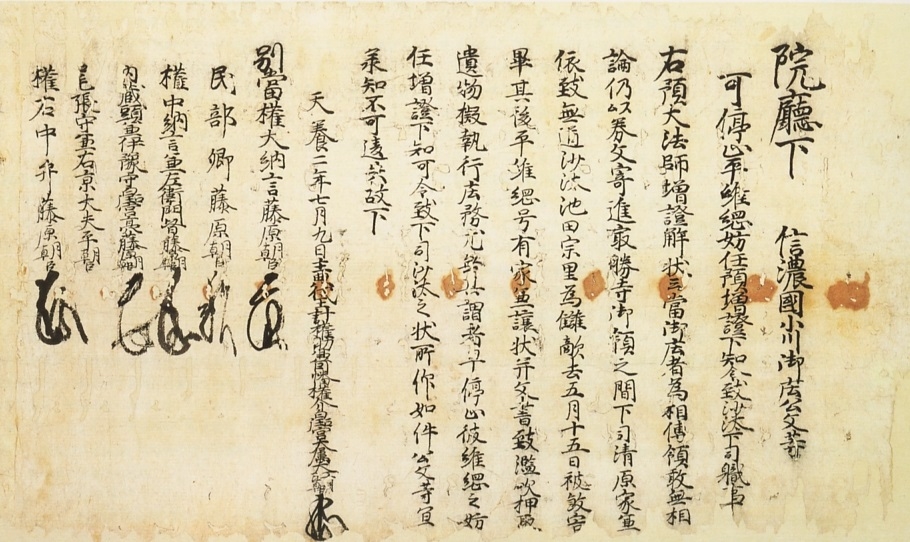 院廳下 信濃國小川御庄公文等
可停止平維綱妨任預増證下知令致沙汰下司職事
右預大法師増證解状云當御庄者為相傳領敢無相
論仍以券文寄進最勝寺御領之間下司清原家兼
依致無道沙汰池田宗里為讎敵去五月十五日被敓害
畢其後平維綱号有家兼譲状并文書致濫吹押取
遺物擬執行庄務尤終以謂者早停止彼維綱之妨
任増證下知可令致下司沙汰之状所仰如件公文等宜
承知不可違失故下
天養二年七月九日主典代
別當權大納言藤原朝臣
民部卿藤原朝臣
權中納言兼左衛門督藤原朝臣
内蔵頭兼伊豫守皇后宮亮藤原朝臣
尾張守兼右京大夫平朝臣
權右中弁藤原朝臣